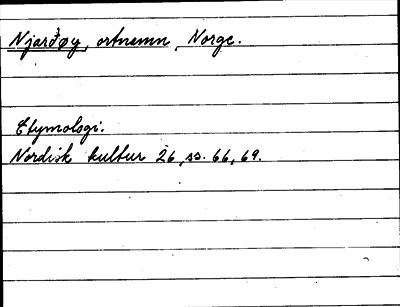 Njarđøy, ortnamn, Norge.
Etymologi.
Nordisk kultur 26, ss. 66, 69.